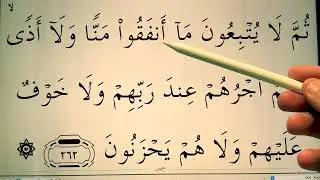 لا
ثُمَّ لَا يُتْبِعُونَ مَآ أَنفَقُوا۟ مَنًّا وَلَآ أَذًى
مْ أَجْرُهُمْ عِندَ رَبِّهِمْ وَلَا خَوْفٌ
عَلَيْهِمْ وَلَا هُمْ يَحْزَنُونَ ٢٦٢